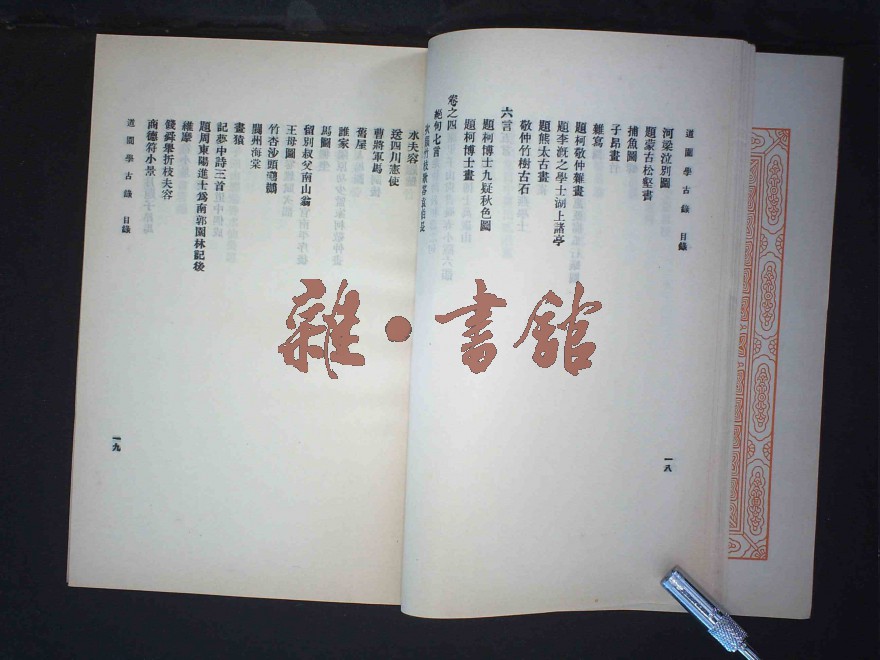 道園學古錄 目錄
河梁泣別圖
題蒙古松堅書
捕魚圖
子昂畫石
雜寫
題柯敬仲雜畫
題李溉之學士湖上諸亭
題熊太古畫
敬仲竹樹古石
六言
題柯博士九疑秋色圖
題柯博士畫
卷之四
絕句七言
一八
水夫容
送四川憲使
曹將軍馬
舊屋
誰家
馬圖
留別叔父南山翁
王母圖
竹杏沙頭鸂鶒
閬州海棠
畫猿
記夢中詩三首
題周東陽進士爲南郭園林記後
錢舜舉折枝夫容
商德符小景
道園學古錄 目錄
一九
雜·書館